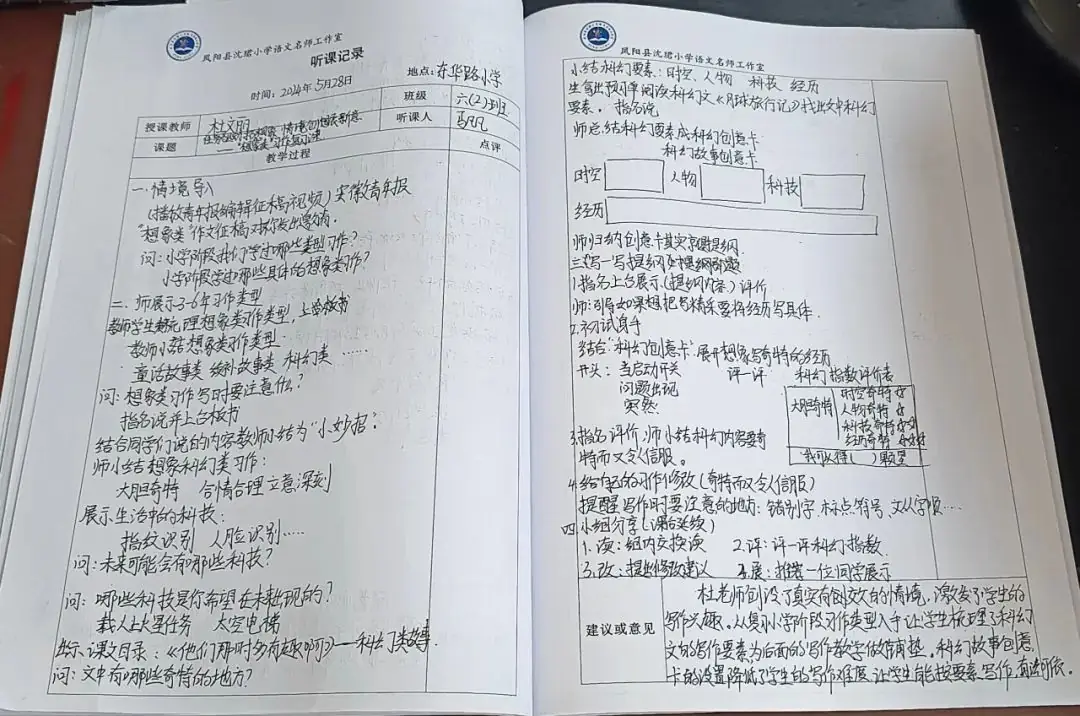 凤阳县沈珺小学语文名师工作室
听课记录
时间：2024年5月28日 地点：东华路小学
授课教师 杜文丽 班级 六(2)班
课题 听课人 马凡凡
"想象类"习作复习课
教学过程 点评
一、情境导入
(播放青年报编辑征稿视频)安徽青年报
"想象类"作文征稿对你发出邀约.
问：小学阶段我们学过哪些类型习作？
小学阶段学过哪些具体的想象类习作？
二、师展示3-6年习作类型
教师学生梳理想象类习作类型，上台板书
教师小结想象类习作类型.
童话故事类 故事类 科幻类……
问：想象类习作写时要注意什么？
指名说并上台板书
结合同学们说的内容教师小结为"小妙招"：
师小结想象科幻类习作：
大胆奇特 合情合理 立意深刻
展示生活中的科技：
指纹识别 人脸识别……
问：未来可能会有哪些科技？
问：哪些科技是你希望在未来出现的？
载人上火星任务 太空电梯
出示课文目录：《他们那时多有趣啊》—科幻类故事.
问：文中有哪些奇特的地方？
凤阳县沈珺小学语文名师工作室
小结科幻要素：时空、人物 科技 经历
生拿出预习单阅读科幻文《月球旅行记》找出文中科幻
要素。指名说
师总结科幻要素成科幻创意卡
科幻故事创意卡
时空 人物 科技
经历
师归纳创意卡其实就是提纲
三、写一写提纲
1.指名上台展示(提纲内容)评价
师：引导如果想把写精采要将经历写具体.
2.初试身手
结合"科幻创意卡"展开想象写奇特的经历
开头：当启动开关 评一评 科幻指数评价表
问题出现
突然
大胆奇特 时空奇特☆
人物奇特☆
科技奇特☆
经历奇特☆
我可以得( )颗星
3.指名评价，师小结科幻内容要奇
特而又令人信服。
4.给自己的习作修改(奇特而又令人信服)
提醒写作时要注意的地方：错别字 标点符号、文从字顺……
四、小组分享(课后延续)
1.读：组内交换读 2.评：评一评科幻指数
3.改：提出修改建议 4.展：推荐一位同学展示
建议或意见
杜老师创设了真实有效的情境，激发了学生的
写作兴趣。从复习小学阶段习作类型入手让学生梳理了科幻
文的写作要素，为后面的写作教学做好铺垫。科幻故事创意
卡的设置降低了学生的写作难度，让学生能按要素写作，有法可依。